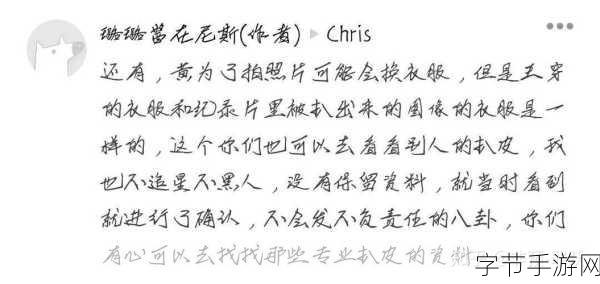 璐璐曾在尼斯(作者) ▸ Chris
还有，黄为了拍照片可能会换衣服，但是王穿
的衣服和纪录片里被扒出来的图像的衣服是一
样的，这个你们也可以去看看别人的扒皮，我
也不追星不黑人，没有保留资料，就当时看到
就进行了确认，不会发不负责任的八卦，你们
有心可以去找找那些专业扒皮的资料
字节手游网